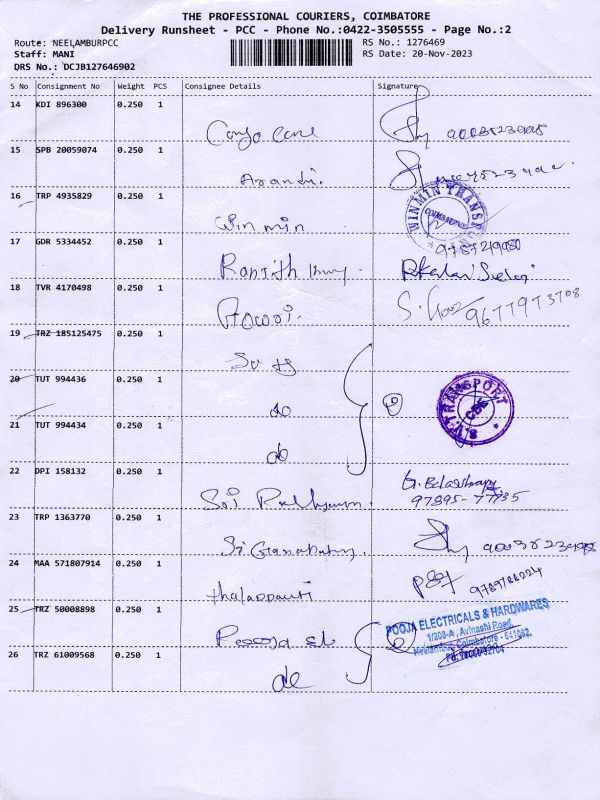 THE PROFESSIONAL COURIERS, COIMBATORE
Delivery Runsheet - PCC - Phone No.:0422-3505555 - Page No.:2
Route: NEELAMBURPCC RS No.: 1276469
Staff: MANI RS Date: 20-Nov-2023
DRS No.: DCJB127646902
S No Consignment No Weight PCS Consignee Details Signature
14 KDI 896300 0.250 1
15 SPB 20059074 0.250 1
Anandi.
16 TRP 4935829 0.250 1
WINMIN TRANSPORT
COIMBATORE
Win min
17 GDR 5334452 0.250 1
Ranjith
18 TVR 4170498 0.250 1
Gowri. 9677973708
19 TRZ 185125475 0.250 1
20 TUT 994436 0.250 1
do
S.V.TRANSPORT
CBE
21 TUT 994434 0.250 1
do
22 DPI 158132 0.250 1
Sri 97895-77735
23 TRP 1363770 0.250 1
Sri Ganapathy.
24 MAA 571807914 0.250 1
25 TRZ 50008898 0.250 1
POOJA ELECTRICALS & HARDWARES
1/208-A, Avinashi Road,
Neelambur, Coimbatore - 641062.
Pooja el
26 TRZ 61009568 0.250 1
do